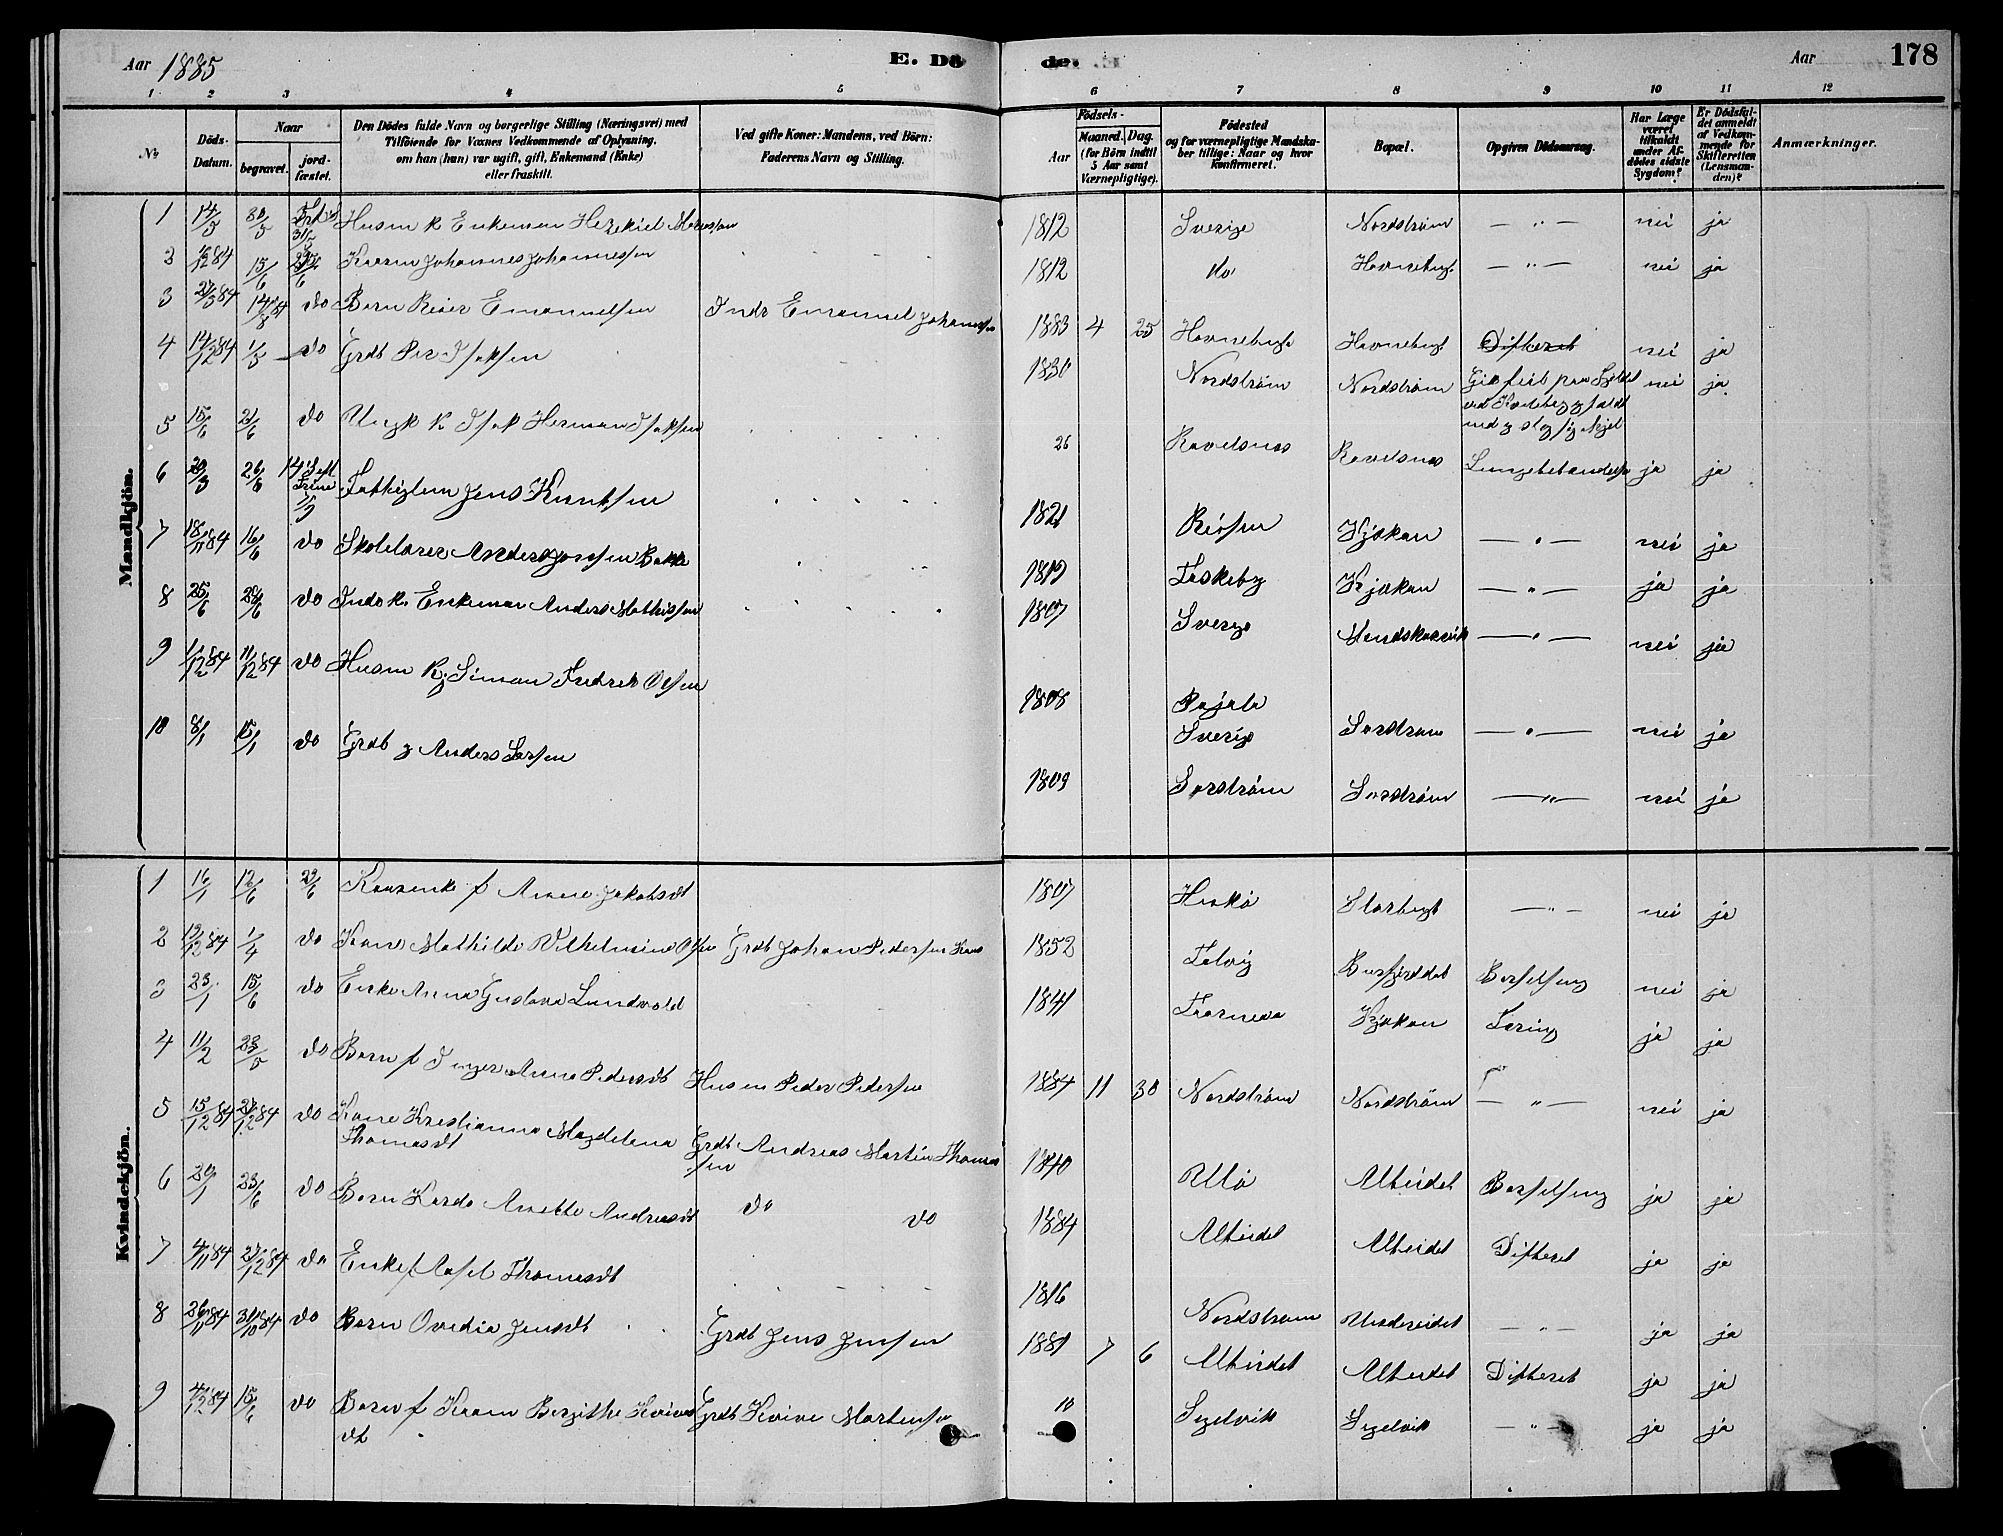 Aar 1885 E. Dö de. Aar 178
1 2 3 4 5 6 7 8 9 10 11 12
No
Döds-Datum.
Naar
begravet.
jord-fæstet.
Den Dödes fulde Navn og borgerlige Stilling (Næringsvei) med
Tilföiende for Voxnes Vedkommende af Oplysning,
om han (hun) var ugift, gift, Enkemand (Enke)
eller fraskilt.
Ved gifte Koner: Mandens, ved Börn:
Faderens Navn og Stilling.
Födsels-
Aar
Maaned. Dag.
(for Börn indtil
5 Aar samt
Værnepligtige).
Födested
og for værnepligtige Mandska-
ber tillige: Naar og hvor
konfirmeret.
Bopæl.
Opgiven Dödsaarsag.
Har Læge
været
tilkaldt
under Af-
dødes sidste
Sygdom?
Er Dödsfal-
det anmeldt
af Vedkom-
mende for
Skifteretten
(Lensman-
den)?
Anmærkninger.
Mandkjön.
1 14/5 30/5 31/5 Husm k Enkeman Hezekiel 1812 Sverige Nordstrøm — " — nei ja
2 15/6 Johannes Johannessen 1812 do Havnebugt — " — nei ja
3 do Barn Reier Emanuelsen Inds Emanuel Johannessen 1883 4 25 Havnebugt Havnebugt Difteret nei ja
4 14/12 84 1/5 do Grdb Per Isaksen 1830 Nordstrøm Nordstrøm nei ja
5 15/6 21/6 do Ungk k Isak Herman Isaksen 26 Ravelsnes Ravelsnes Lungebetændelse ja ja
6 26/6 Fattiglem Jens Knutsen 1821 Reisen Kjækan — " — nei ja
7 18/11 84 16/6 do Skolelærer Anders Jonssen Bakke 1819 Kjækan — " — ja ja
8 25/6 28/6 do Inds k. Enkeman Anders Mathissen 1807 Sverge — " — nei ja
9 11/12 84 do Husm Simon Fredrik Olsen 1808 Pajala
Sverige Sørstrøm — " — nei ja
10 8/1 15/1 do Grdb g Anders Larsen 1809 Sørstrøm Sørstrøm — " — nei ja
Kvindekjön.
1 16/1 12/6 29/6 f Anne Jakobsdt 1807 Haukø Storbugt — " — nei ja
2 19/12 84 1/4 do Kone Mathilde Vilhelmine Olsen Grdb Johan Pedersen 1852 Talvig Burfjorddal Barselseng nei ja
3 23/1 15/6 do Enke Anna Gustava Lundvold 1841 Torneaa Kjækan Tæring ja ja
4 11/2 do Barn f Inger Anne Pedersdt Husm Peder Pedersen 1884 11 30 Nordstrøm Nordstrøm — " — nei ja
5 15/12 84 do Kone Kristianna Magdelena
Thomasdt Grdb Andreas Martin Thomas
sen 1840 Ulø Alteidet Barselseng ja ja
6 23/6 do Barn Anette Andreasdt do do 1884 Alteidet Alteidet Difteret ja ja
7 4/11 84 27/12 84 do Enke f Thomasdt 1816 Nordstrøm Undereidet — " — ja ja
8 26/11 84 31/10 84 do Barn Ovedia Jensdt Grdb Jens Jensen 1881 7 6 Alteidet Alteidet Difteret ja ja
9 15/6 do Barn f Karen Bergithe
dt Grdb Mortensen 10 Segelvik Segelvik — " — ja ja